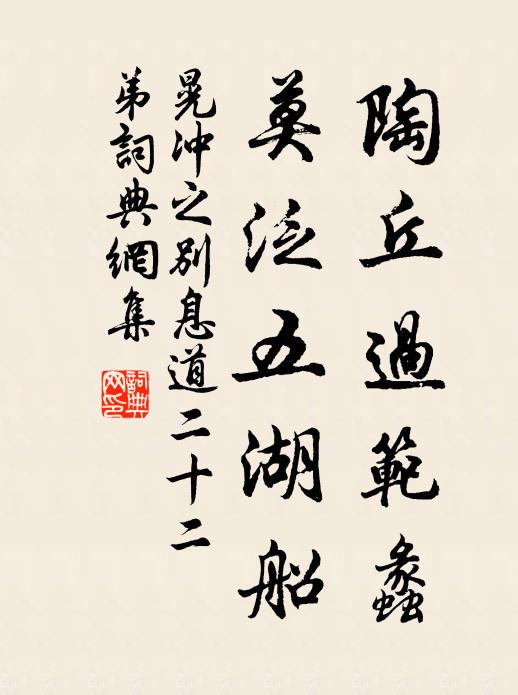 陶丘過範蠡
莫泛五湖船
晃沖之別息道二十二
弟詞典網集
詞典网印